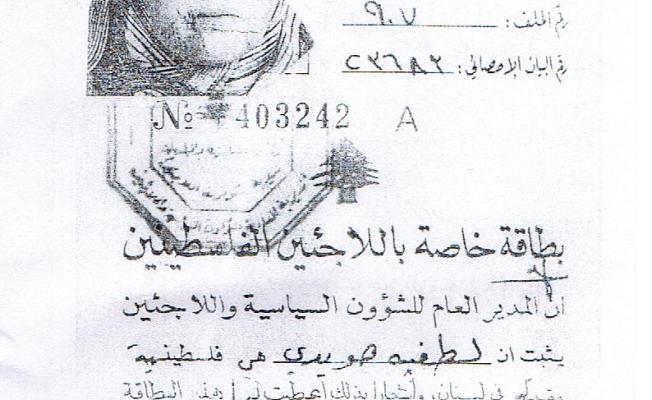 رقم الملف: ٩٠٧
رقم البيان الاحصائي:
№ 403242 A
بطاقة خاصة باللاجئين الفلسطينيين
ان المدير العام للشؤون السياسية واللاجئين
يثبت ان لطفيه هويدي هي فلسطينية
في لبنان، بذلك اعطيت البطاقة